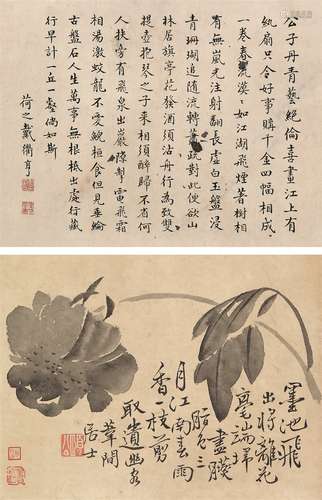 公子丹青藝絕倫喜畫江上有
紈扇只合好事購千金四幅相成
一卷春漠如江湖飛煙著樹相
有無嵐光注射翻長虛白玉盤浸
青珊瑚追隨流轉疏對此便欲山
林居旗亭花發酒須沽舟行為致雙
提壺抱琴之子來相須醉歸不省何
人扶旁有飛泉出巖隙掣電飛霜
相湯激蛟龍不受食但見垂綸
古盤石人生萬事無根柢出處行藏
行早計一丘一壑倘如斯
荷之戴衢亨
墨池飛
出將離花
毫端
畫勝
脂三
月江南春雨
香一枝剪
取遺幽客
葦間
居士